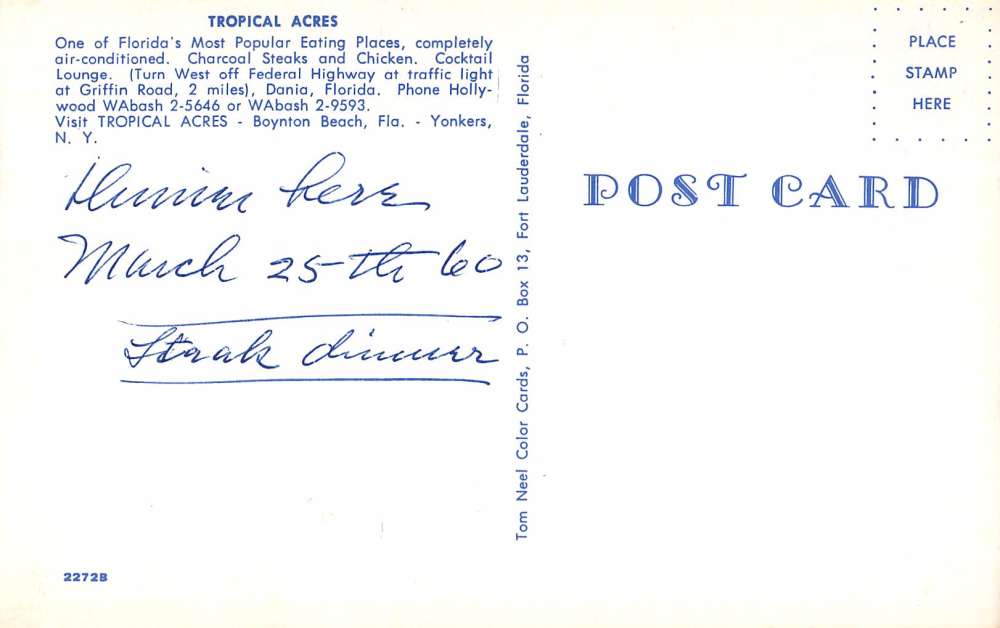 TROPICAL ACRES
One of Florida's Most Popular Eating Places, completely
air-conditioned. Charcoal Steaks and Chicken. Cocktail
Lounge. (Turn West off Federal Highway at traffic light
at Griffin Road, 2 miles), Dania, Florida. Phone Holly-
wood WAbash 2-5646 or WAbash 2-9593.
Visit TROPICAL ACRES - Boynton Beach, Fla. - Yonkers,
N. Y.
here
March 25-th 60
Steak dinner
2272B
Tom Neel Color Cards, P. O. Box 13, Fort Lauderdale, Florida
PLACE
STAMP
HERE
POST CARD